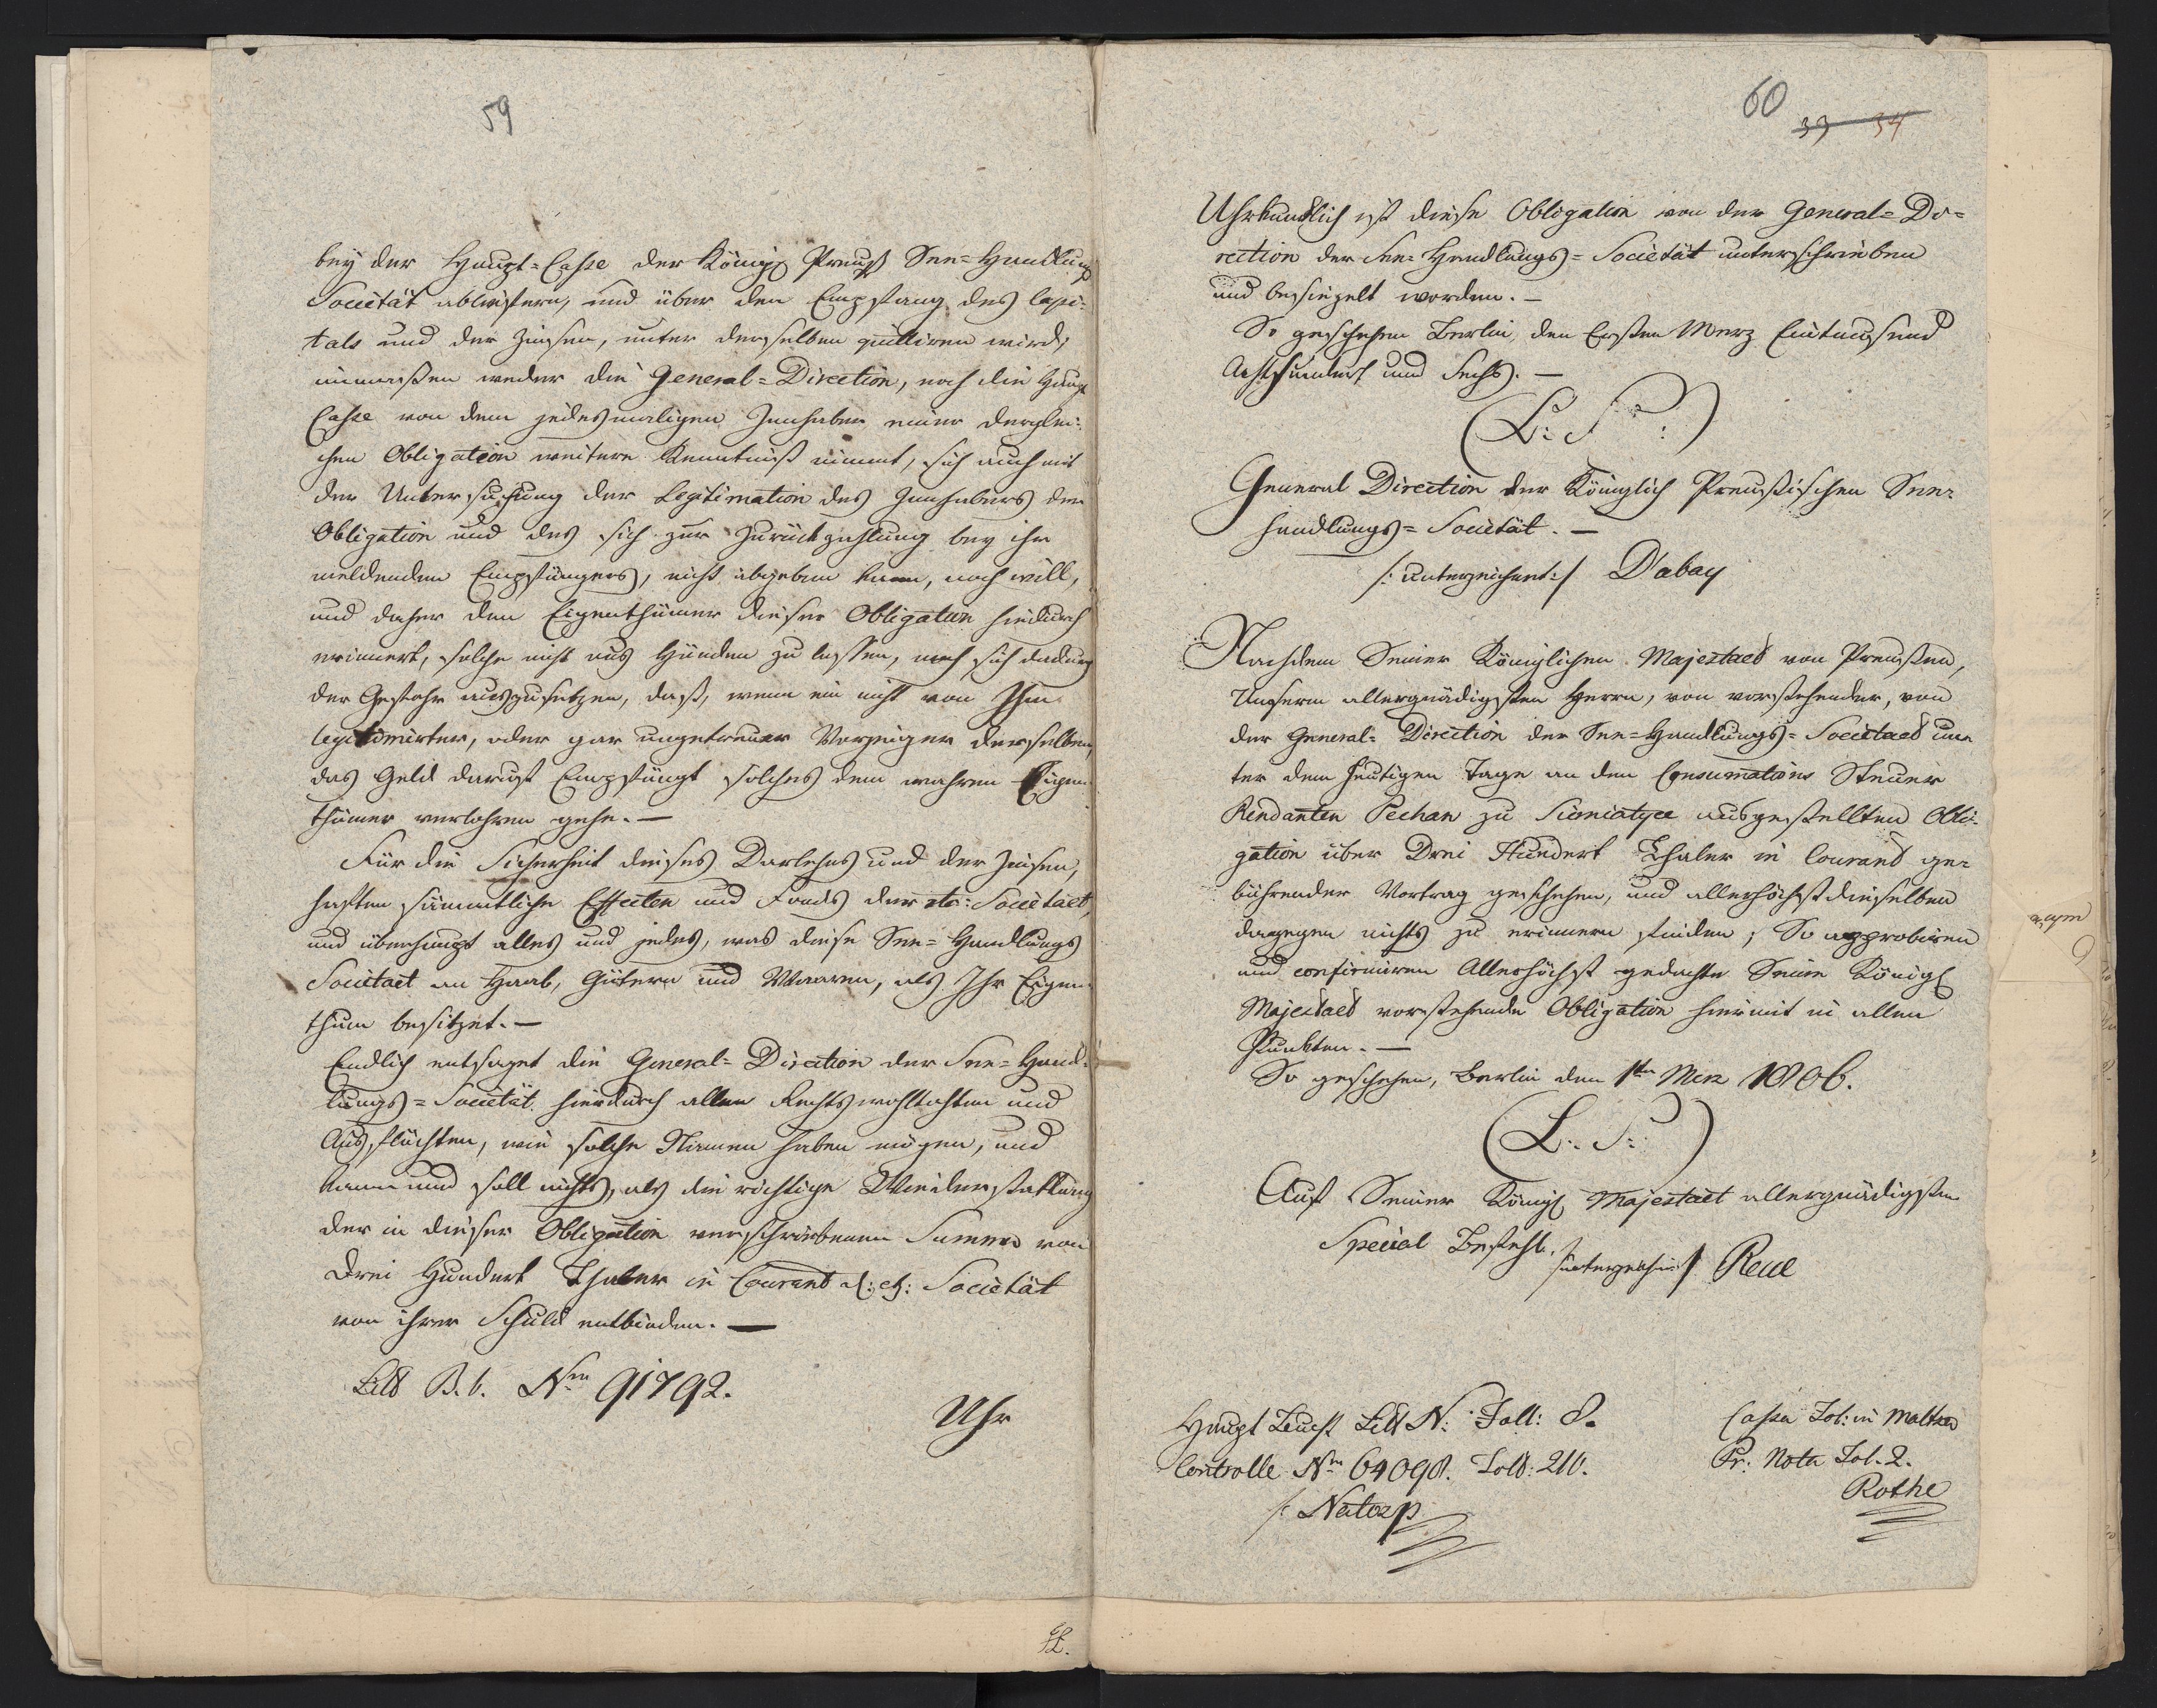 59
bey der Haupt-Casse der Königl. Preuß. See-Handlungs
Societät abliefern, und über den Empfang des Capi-
tals und der Zinsen, unter derselben quittiren wird,
immaßen weder die General-Direction, noch die Haupt
Casse von dem jedesmaligen Innhaber einer derglei-
chen Obligation weitere Kenntniß nimmt, sich auch mit
der Untersuchung der Legitimation des Innhabers der
Obligation und des sich zur Zurückzahlung bey ihr
meldenden Empfängers, nicht abgeben kann, noch will,
und daher den Eigenthümer dieser Obligation hiedurch
erinnert, solche nicht aus Händen zu lassen, noch sich dadurch
der Gefahr auszusetzen, daß, wenn ein nicht von Ihm
legitimirter, oder gar ungetreuer Vorzeiger derselben,
das Geld darauf Empfängt solches dem wahren Eigen-
thümer verlohren gehe. —
Für die Sicherheit dieses Darlehns und der Zinsen,
haften sämmtliche Effecten und Fonds der etc: Societaet,
und überhaupt alles und jedes, was diese See-Handlungs
Societaet an Haab, Gütern und Waaren, als Ihr Eigen-
thum besitzet. —
Endlich entsaget die General-Direction der See-Hand-
lungs-Societät hierdurch allen Rechtswohlthaten und
Ausflüchten, wie solche Namen haben mögen, und
kann und soll nichts, als die richtige Wiedererstattung
der in dieser Obligation verschriebenen Summe von
Drei Hundert Thaler in Courant Societät
von ihrer Schuld entbinden. —
Litt B. b. Nro 91792.
Uhr
60
33 34
Uhrkundlich ist diese Obligation von der General-Di-
rection der See-Handlungs-Societät unterschrieben
und besiegelt worden. —
So geschehen Berlin, den Ersten Merz Eintausend
Achthundert und Sechs. —
(L: S:)
General Direction der Königlich Preußischen See-
handlungs-Societät. —
/: unterzeichnet :/ Dabay
Nachdem Seiner Königlichen Majestaet von Preußen,
Unserm allergnädigsten Herrn, von vorstehender, von
der General-Direction der See-Handlungs-Societaet un-
ter dem heutigen Tage an den Consumations Steuer
Rendanten Pechan zu ausgestellten Obli-
gation über Drei Hundert Thaler in Courant ge-
bührender Vortrag geschehen, und allerhöchst dieselben
dagegen nichts zu erinnern finden; So approbiren
und confirmiren Allerhöchst gedachte Seine Königl
Majestaet vorstehende Obligation hiermit in allen
Punkten. —
So geschehen, Berlin den 1ten Merz 1806.
(L. S:)
Auf Seiner Königl Majestaet allergnädigsten
Special Befehl.
/unterzeichnet/ Reul
Haupt Buch Litt N: Foll: 8.
Controlle Nro 64098. Foll: 210.
/: Natorp
Cassa Fol: in
Pr: Nota Fol. 2.
Rothe